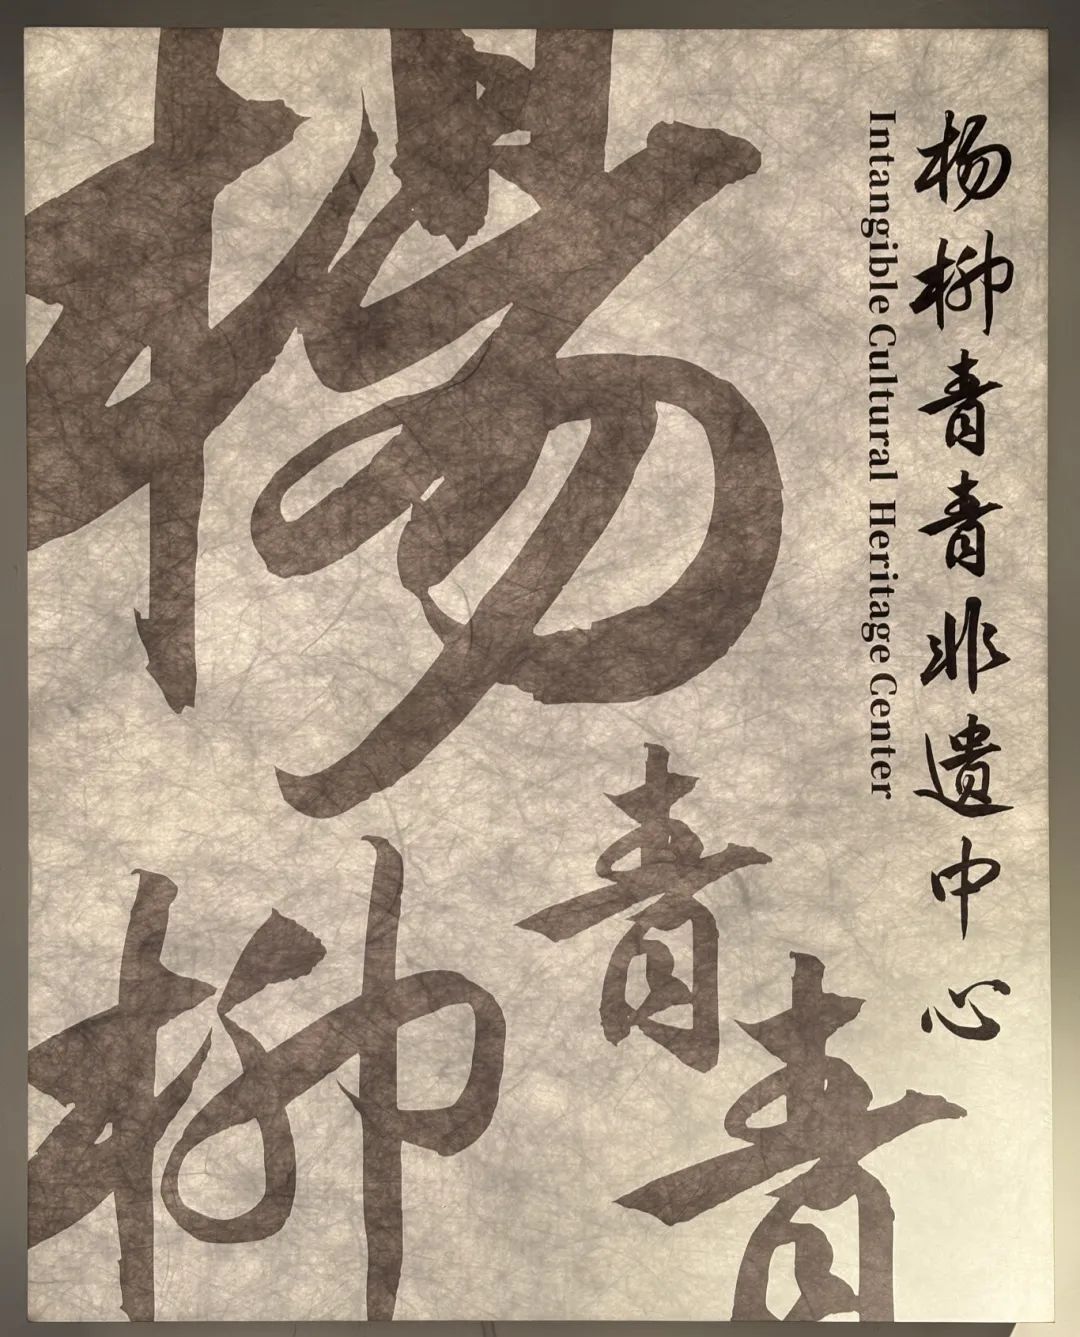 杨柳青青非遗中心
Intangible Cultural Heritage Center
杨
柳
青
青